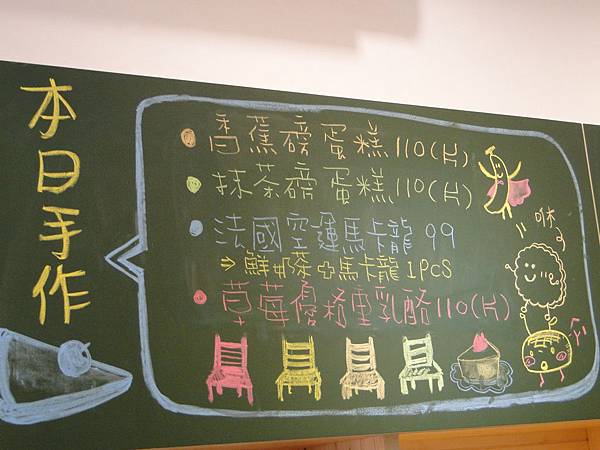 本日手作
香蕉磅蛋糕 110(片)
抹茶磅蛋糕 110(片)
法國空運馬卡龍 99
→ 鮮奶茶+馬卡龍 1PCS
草莓優格重乳酪 110(片)
咻